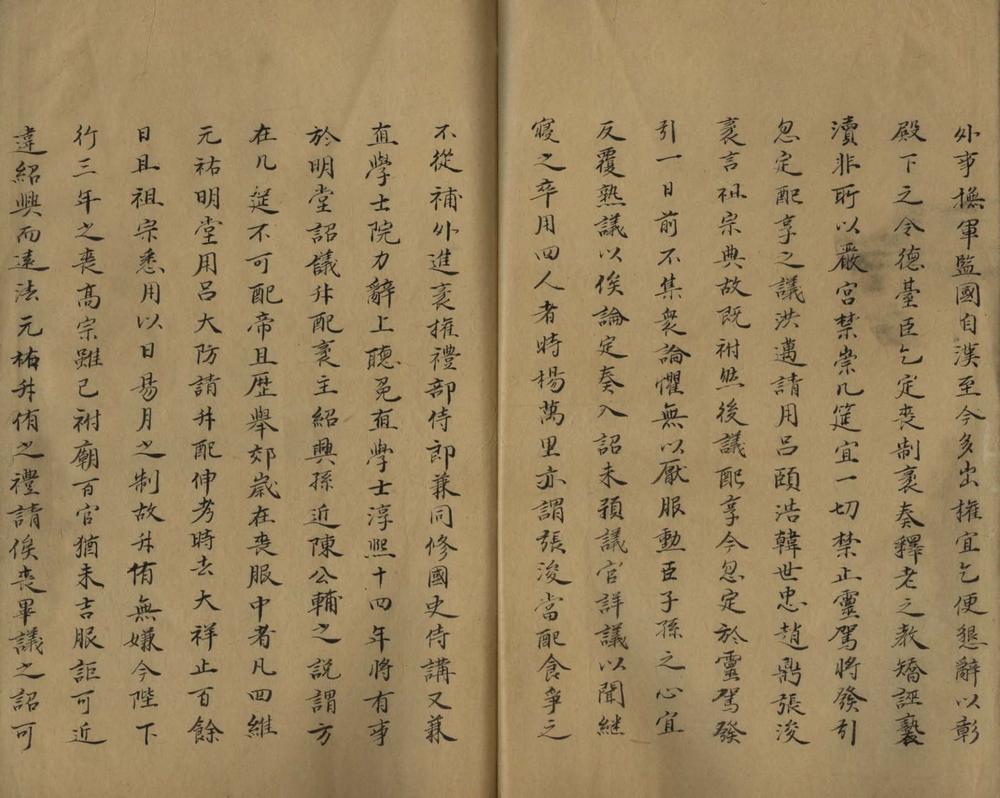 外事撫軍監國自漢至今多出權宜乞便懇辭以彰
殿下之令德臺臣乞定喪制袤奏釋老之教矯誣褻
瀆非所以嚴宮禁崇几筵宜一切禁止靈駕將發引
忽定配享之議洪邁請用呂頤浩韓世忠趙鼎張浚
袤言祖宗典故既祔然後議配享今忽定於靈駕發
引一日前不集衆論懼無以厭服勳臣子孫之心宜
反覆熟議以俟論定奏入詔未預議官詳議以聞繼
寢之卒用四人者時楊萬里亦謂張浚當配食爭之
不從補外進袤權禮部侍郎兼同修國史侍講又兼
直學士院力辭上聽免直學士淳熙十四年將有事
於明堂詔議升配袤主紹興孫近陳公輔之說謂方
在几筵不可配帝且歷舉郊歲在喪服中者凡四維
元祐明堂用呂大防請升配伸考時去大祥止百餘
日且祖宗悉用以日易月之制故升侑無嫌今陛下
行三年之喪高宗雖已祔廟百官猶未吉服詎可近
違紹興而遠法元祐升侑之禮請俟喪畢議之詔可